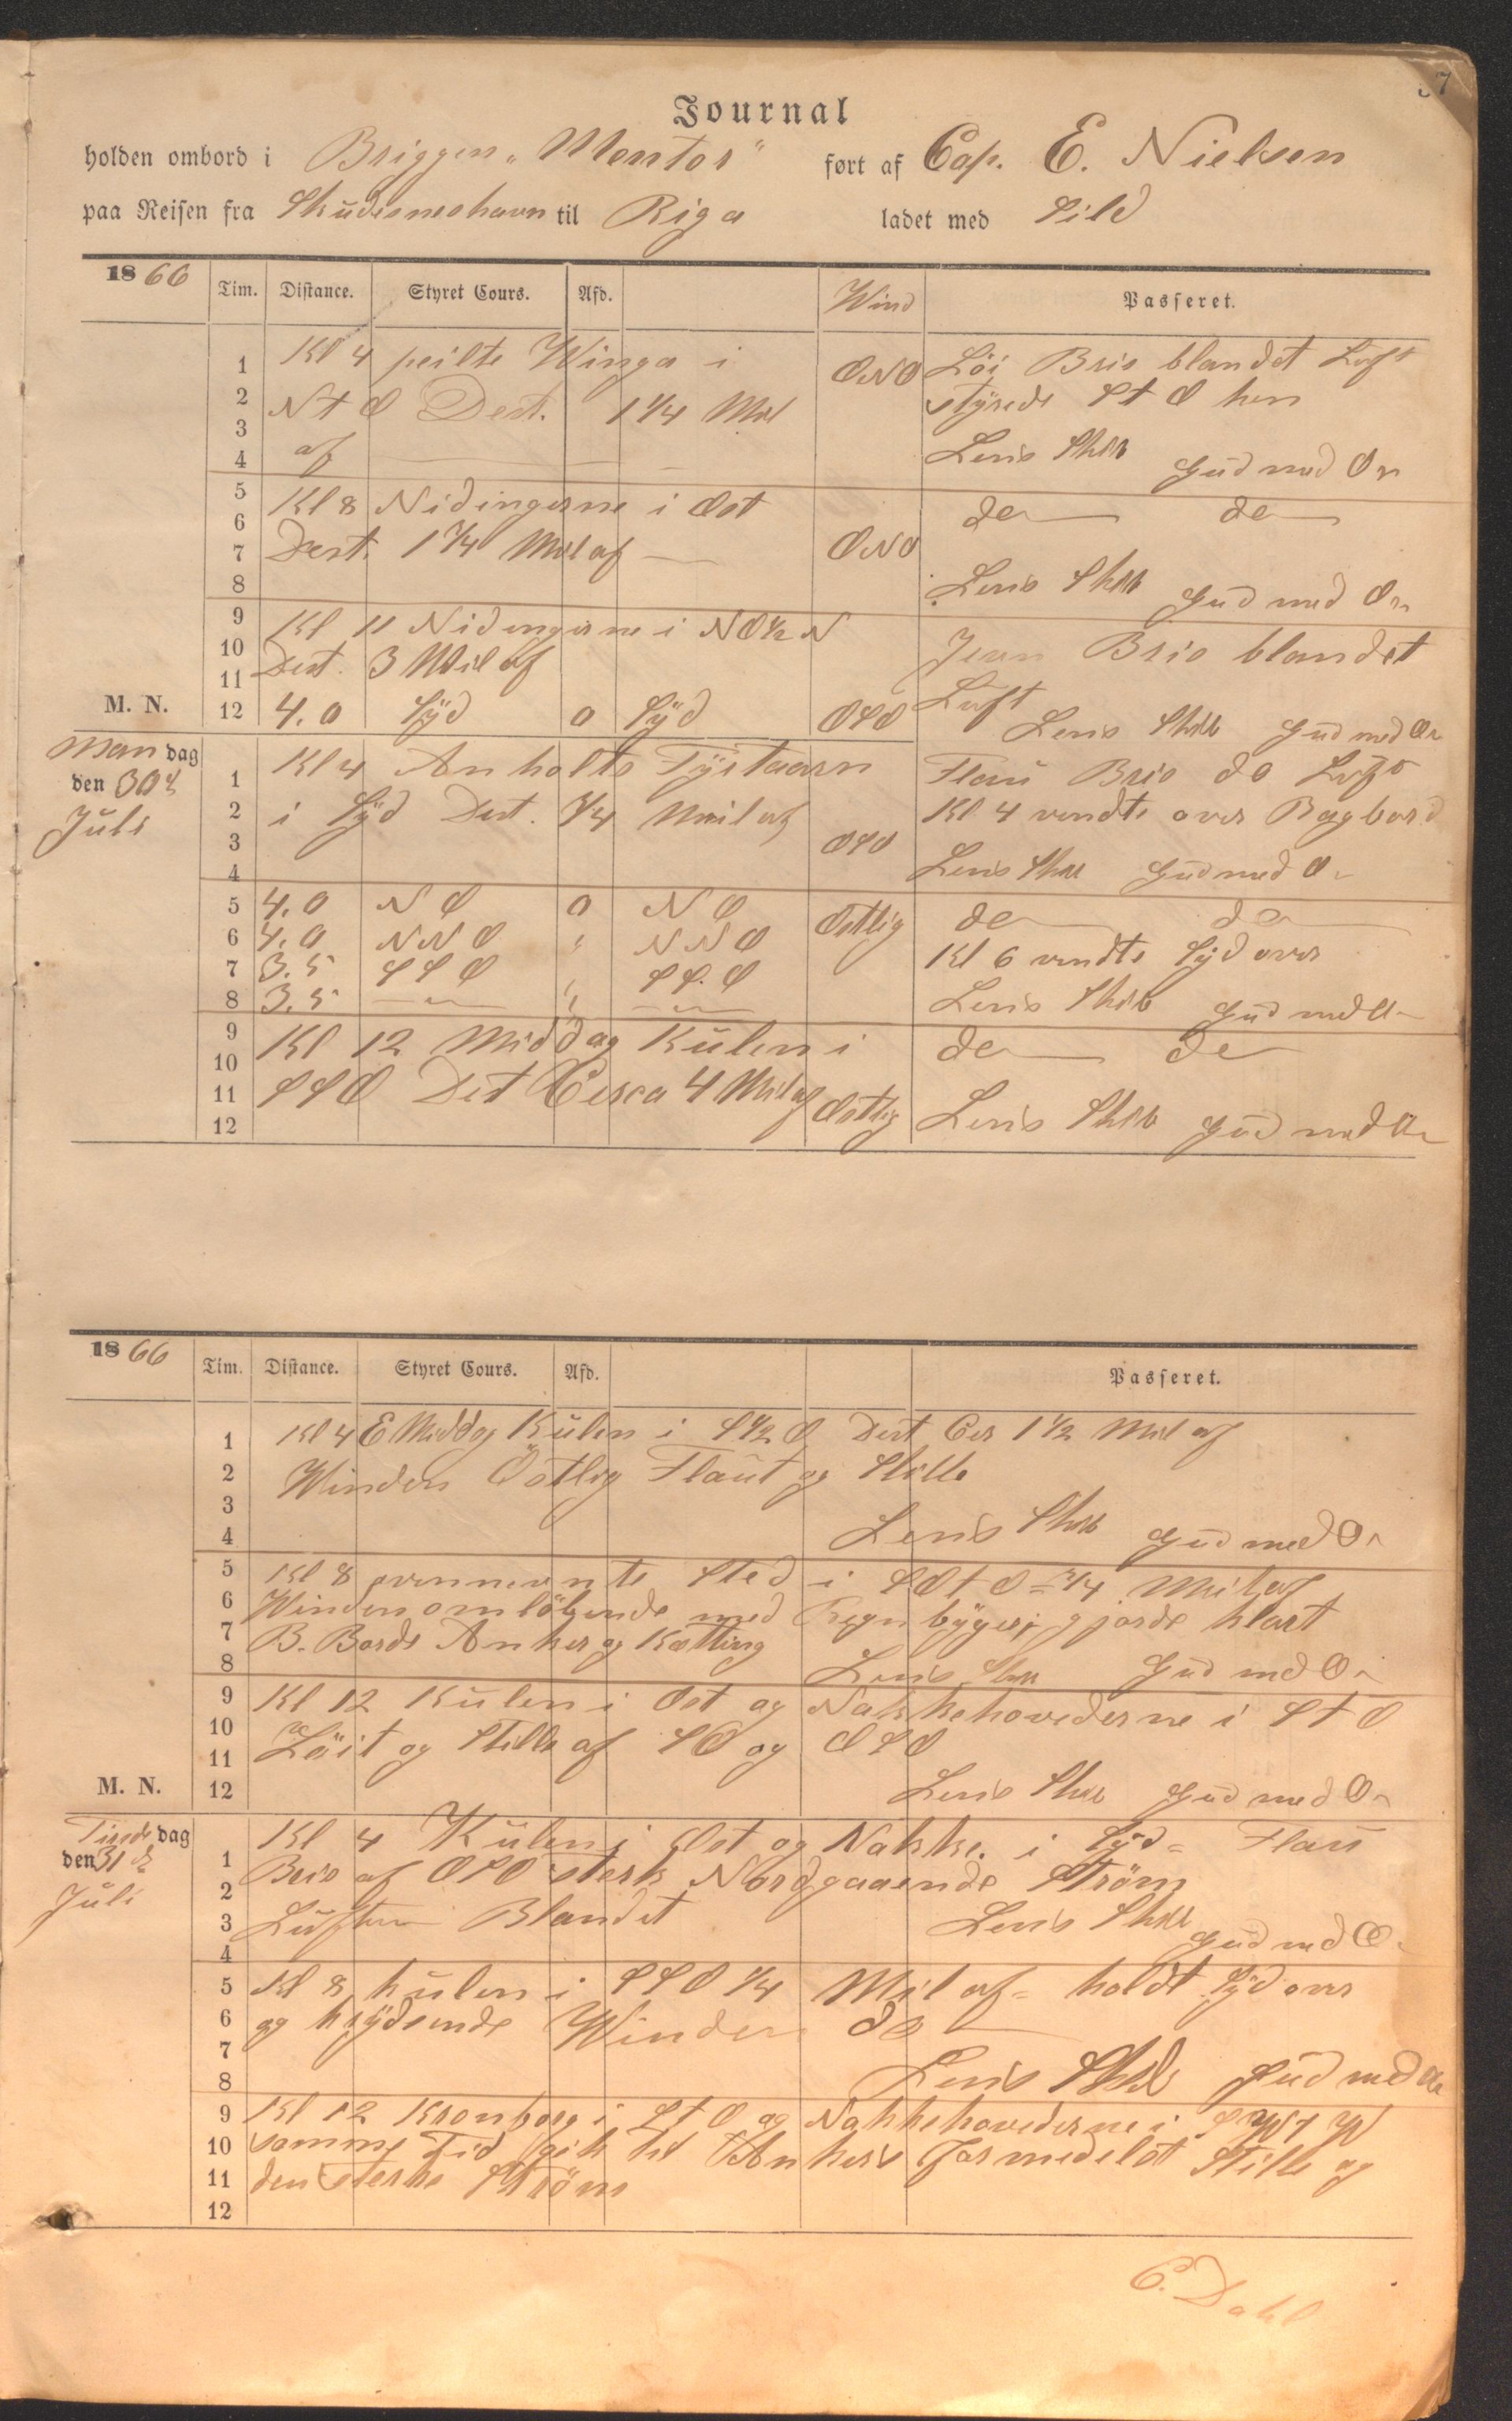 37
Journal
holden ombord i Briggen „Mentor" ført af Cap. E. Nielsen
paa Reisen fra Skudesneshavn til Riga ladet med Sild
1866 Tim. Distance. Styret Cours. Afd. Wind Passeret.
1 Kl 4 peilte Winga i ONO Löi Bris blandet Luft
2 N t O Dest. 1 1/4 Mil styrede S t O hen
3 af
4 Lens Skib Gud med Os
5 Kl 8 Nidingerne i Ost do do
6
7 Dest. 1 1/4 Mil af ONO
8 Lens Skib Gud med Os
9 Kl 11 Nidingerne i NO 1/2 N
10 Dest. 3 Mil af Jevn Bris blandet
11 Luft
M. N. 12 4.0 Syd 0 Syd OSO Lens Skib Gud med Os
Mandag
den 30d
Juli
1 Kl 4 Anholts Fyrtaarn Flau Bris do Luft
2 i Syd Dest. 3/4 Mil af Kl 4 vendte over Bagbord
3 OSO
4 Lens Skib Gud med Os
5 4.0 NO 0 NO Ostlig do do
6 4.0 NNO " NNO Kl 6 vendte Syd over
7 3.5 SSO " SS.O
8 3.5 — " — " — " — Lens Skib Gud med Os
9 Kl 12 Middag Kulen i do do
10
11 SSO Dest Circa 4 Mil af Ostlig Lens Skib Gud med Os
12
1866 Tim. Distance. Styret Cours. Afd. Passeret.
1 Kl 4 E Middag Kulen i S 1/2 O Dest Cir 1 1/2 Mil af
2 Winden Östlig Flaut og Stille
3
4 Lens Skib Gud med Os
5 Kl 8 ovennevnte Sted i SO t O 3/4 Mil af
6 Winden omlöbende med Regnbyger, gjorde klart
7 B. Bords Anker og Kætting
8 Lens Skib Gud med Os
9 Kl 12 Kulen i Ost og Nakkehovederne i S t O
10 Löit og Stille af SO og OSO
11
M. N. 12 Lens Skib Gud med Os
Tirsdag
den 31d
Juli
1 Kl 4 Kulen i Ost og Nakke. i Syd = Flau
2 Bris af OSO sterk Nordgaaende Ström
3 Luften Blandet Lens Skib Gud med Os
4
5 Kl 8 Kulen i SSO 1/4 Mil af = holdt Syd over
6 og krydsende Winden do
7
8 Lens Skib Gud med Os
9 Kl 12 Kronborg i S t O og Nakkehovederne i
10 samme Tid gik til Ankers formedelst Stille og
11 den sterke Ström
12
E. Dahl